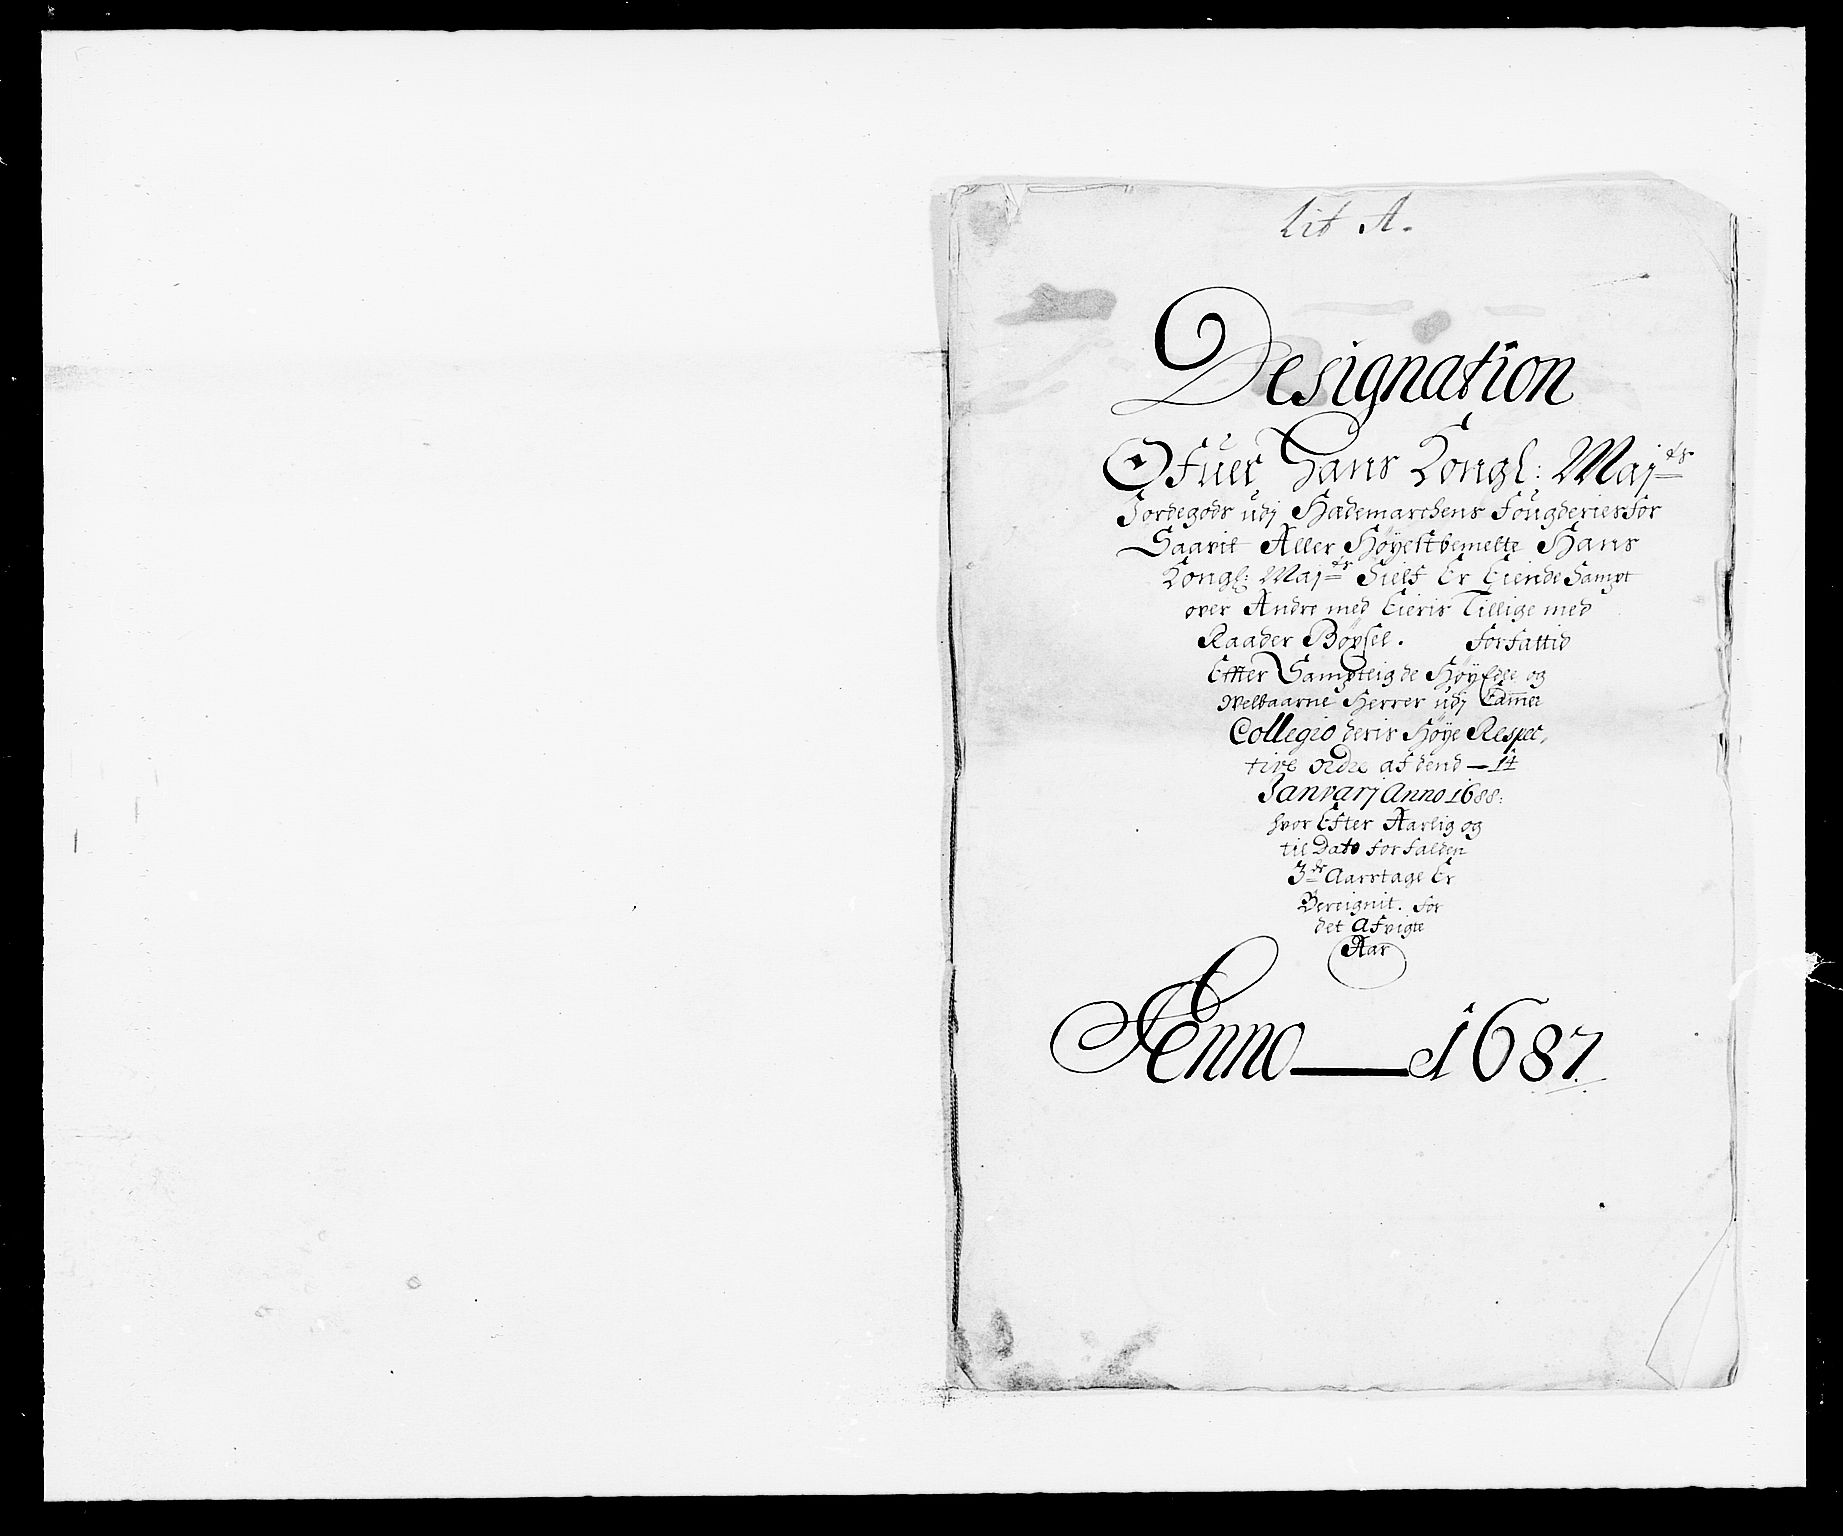 Lit A.
Designation
Ofuer Hans Kongl: Maj^ts
Jordegods udj Hædemarchens fougderie, for
Saavit Aller Høyestbemelte Hans
Kongl: Maj^ts Sielf Er Eiende Sampt
over Andre med Eieris Tillige med
Raader Bøysel. forfattid
Efter Sampteig de Høyedle og
Welbaarne Herrer udj Cammer
Collegio deris Høye Respec,
tive ordre af dend — 14
Januarj Anno 1688:
hvor Efter Aarlig og
til Dato forfalden
3^die Aarstage Er
Bereignit. for
det afvigte
Aar
Anno — 1687.